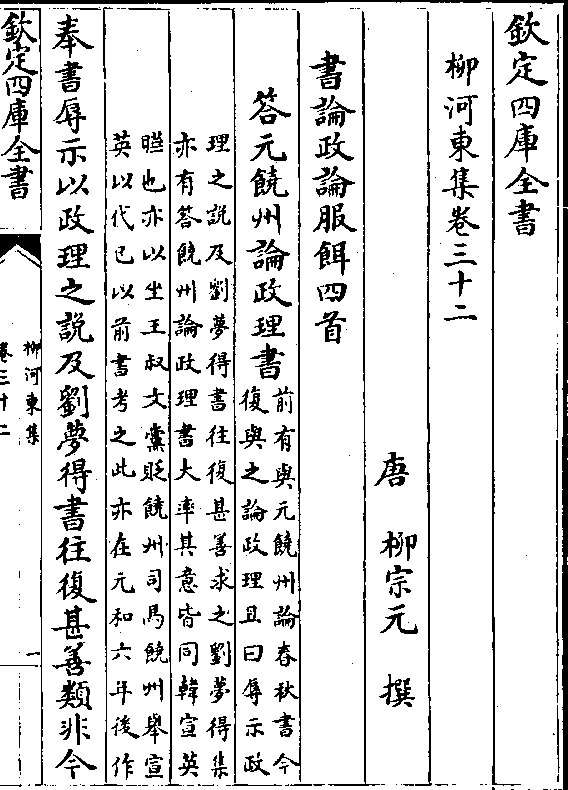 欽定四庫全書
柳河東集卷三十二
唐 柳宗元 撰
書論政論服餌四首
答元饒州論政理書
前有與元饒州論春秋書今
復與之論政理且曰辱示政
理之說及劉夢得書往復甚善求之劉夢得集
亦有答饒州論政理書大率其意皆同韓宣英
曄也亦以坐王叔文黨貶饒州司馬饒州舉宣
英以代已以前書考之此亦在元和六年後作
奉書辱示以政理之說及劉夢得書往復甚善類非今
欽定四庫全書
柳河東集
卷三十二
一